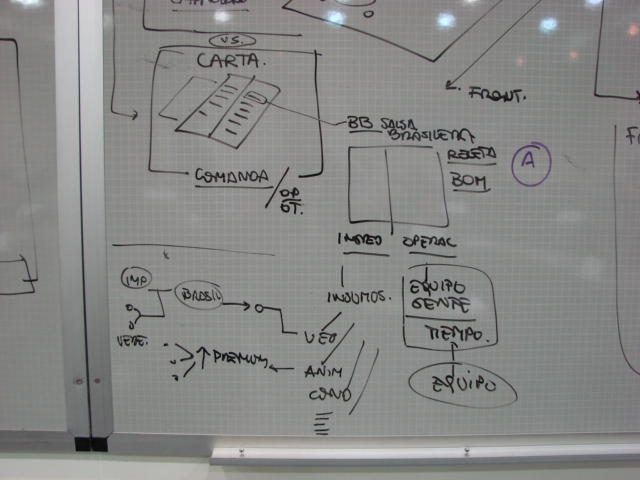 VS.
CARTA.
FRONT.
BB SALSA
BRASILEÑA
RECETA
BOM
A
COMANDA
OP
OT.
INGRED
OPERAC
IMP
BRASIL
INSUMOS.
EQUIPO
GENTE
TIEMPO.
VEG
PREMIUM
ANIM
COND
EQUIPO